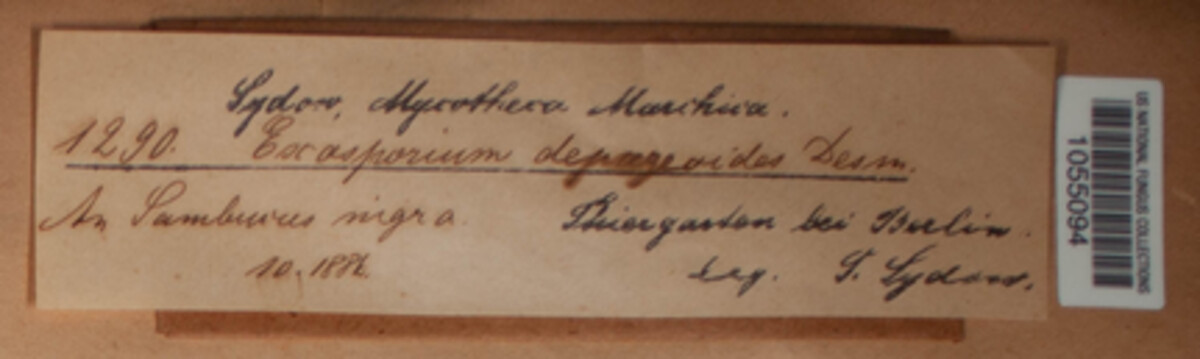 Sydow, Mycotheca Marchica.
1290. Exosporium depazeoides Desm.
An Sambucus nigra.
Thiergarten bei Berlin.
10. 1886.
Leg. P. Sydow.
US NATIONAL FUNGUS COLLECTIONS
1055094